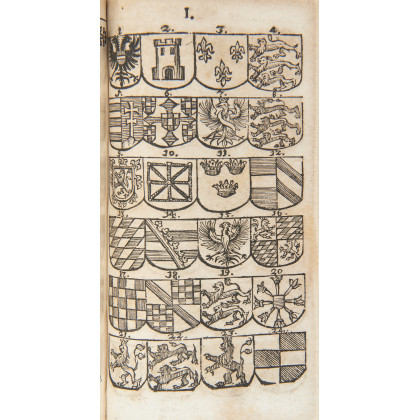 I.
1. 2. 3. 4.
5. 6. 7. 8.
9. 10. 11. 12.
13. 14. 15. 16.
17. 18. 19. 20
21. 22. 23. 24.